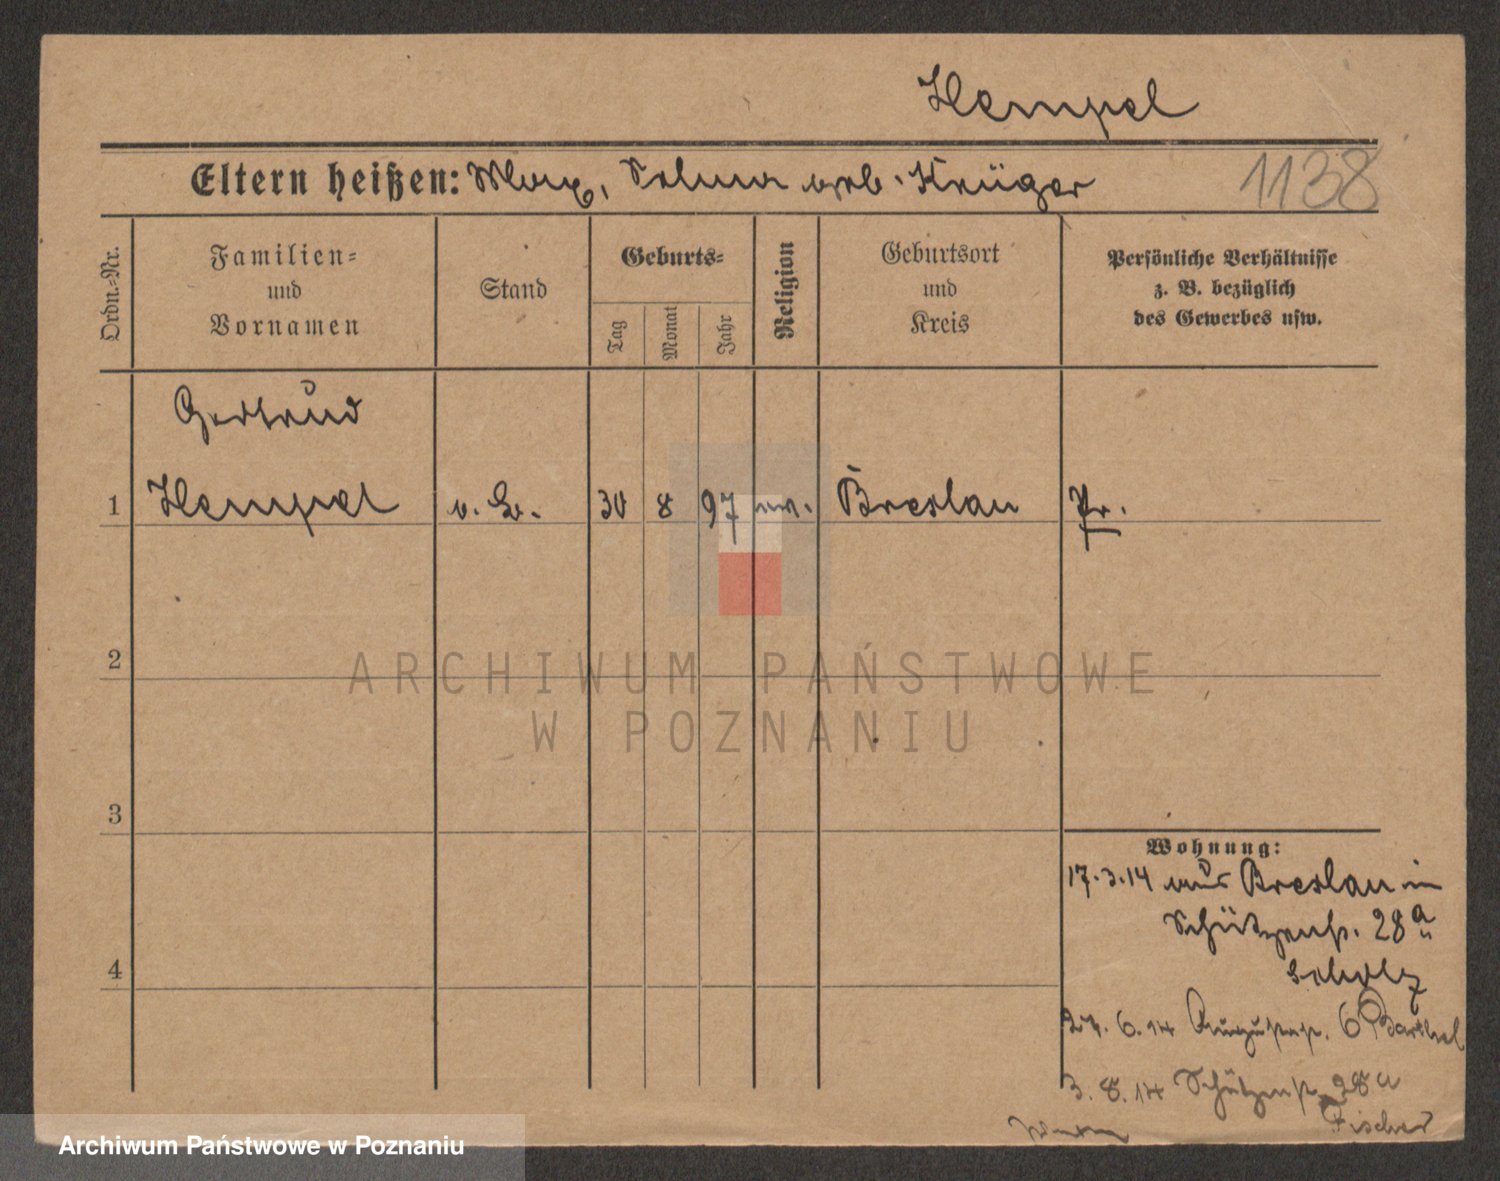 Hempel
Eltern heißen: Max, Selma geb. Krüger
1138
Ordn.-Nr.
Familien-
und
Vornamen
Stand
Geburts-
Tag
Monat
Jahr
Religion
Geburtsort
und
Kreis
Persönliche Verhältnisse
z. B. bezüglich
des Gewerbes usw.
Gertrud
1 Hempel 30 8 97 Breslau Pr.
2
3
4
Wohnung:
17.3.14 aus Breslau in
Schützenstr. 28a
Scholz
27.6.14 Augustastr. 6 Barthel
3.8.14 Schützenstr. 28a
Fischer
ARCHIWUM PAŃSTWOWE
W POZNANIU
Archiwum Państwowe w Poznaniu